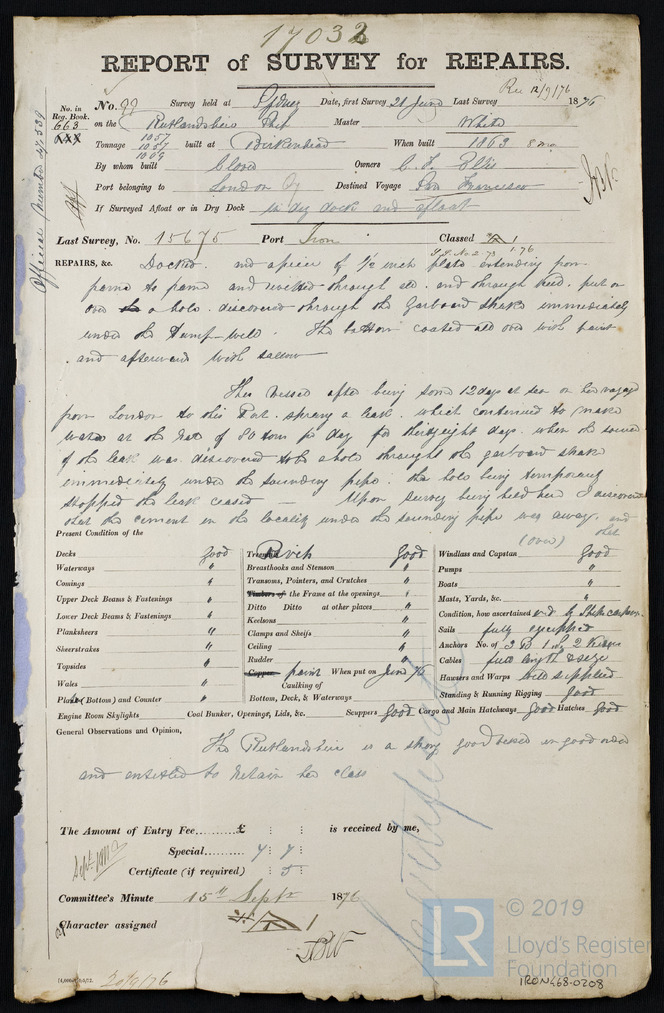 17032
REPORT of SURVEY for REPAIRS.
Rec 12/9/76
No. in Reg. Book.
663
No. 99 Survey held at Sydney Date, first Survey 21 June Last Survey 1876
on the Rutlandshire Ship Master White
Tonnage 1057 1057 1009 built at Birkenhead When built 1863 8 mo
By whom built Clover Owners C. F. Ellis
Port belonging to London Destined Voyage San Francisco
If Surveyed Afloat or in Dry Dock in dry dock and afloat
Official Number 47539
Last Survey, No. 15675 Port Iron Classed A 1
1.76
REPAIRS, &c. Docked. and a piece of 1/2 inch plate extending from
frame to frame and rivetted through and through put on
over a hole discovered through the Garboard strake immediately
under the Pump-well. The bottom coated all over with paint
and afterward with tallow
This vessel after being some 12 days at sea on her voyage
from London to this Port. sprang a leak. which continued to make
water at the rate of 80 tons pr day for thirtyeight days. when the source
of the leak was discovered to be a hole through the garboard strake
immediately under the sounding pipe. the hole being temporarily
stopped the leak ceased — Upon survey being held here I discovered
that the cement in the locality under the sounding pipe was away. and
(over)
Present Condition of the
Decks good
Waterways "
Comings "
Upper Deck Beams & Fastenings "
Lower Deck Beams & Fastenings "
Planksheers "
Sheerstrakes "
Topsides "
Wales "
Plates (Bottom) and Counter "
Engine Room Skylights
Rivets Good
Breasthooks and Stemson "
Transoms, Pointers, and Crutches "
Timbers of the Frame at the openings "
Ditto Ditto at other places "
Keelsons "
Clamps and Shelfs "
Ceiling "
Rudder "
Copper paint When put on June 76
Caulking of
Bottom, Deck, & Waterways
Coal Bunker, Openings, Lids, &c. Scuppers Good
Windlass and Capstan Good
Pumps "
Boats "
Masts, Yards, &c. "
Condition, how ascertained
Sails fully equipped
Anchors No. of 3 B 1 S 2 Kedges
Cables full length & size
Hawsers and Warps well supplied
Standing & Running Rigging Good
Cargo and Main Hatchways Good Hatches Good
General Observations and Opinion,
The Rutlandshire is a strong good vessel in good order
and entitled to retain her class
The Amount of Entry Fee.......... £ : : is received by me,
Special........ 7 : 7 :
Certificate (if required) : 5 :
Committee's Minute 15th Septr 1876
Character assigned A 1
20/9/76
© 2019
LR
Lloyd's Register
Foundation
IRON468-0208